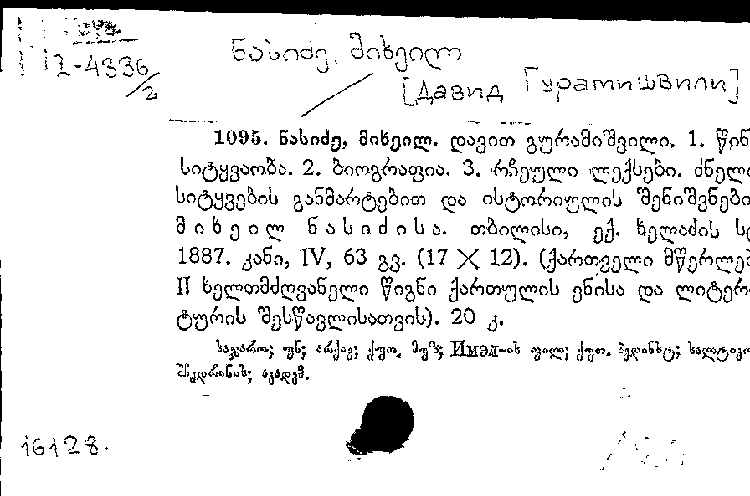 Г12-4336/2
ნასიძე, მიხეილ
[Давид Гурамишвили]
1095. ნასიძე, მიხეილ. დავით გურამიშვილი. 1. წინ
სიტყვაობა. 2. ბიოგრაფია. 3. რჩეული ლექსები. ძნელი
სიტყვების განმარტებით და ისტორიულის შენიშვნები
მიხეილ ნასიძისა. თბილისი, ექ. ხელაძის ს
1887. კანი, IV, 63 გვ. (17 X 12). (ქართველი მწერლები
II ხელთმძღვანელი წიგნი ქართულის ენისა და ლიტერ
ტურის შესწავლისათვის). 20 კ.
საჯარო; უნ; არქივ; ქუთ. მუზ; ИМЭЛ-ის ფილ; ქუთ. პედინსტ; სალტიკო
შჩედრინის; აკადემ.
16128.